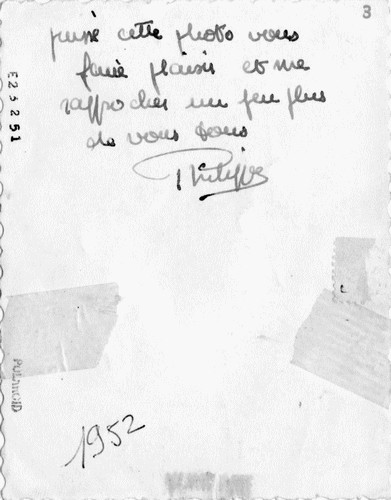 3
puisse cette photo vous
faire plaisir et me
rapprocher un peu plus
de vous tous
Philippe
E23251
POLAROID
1952